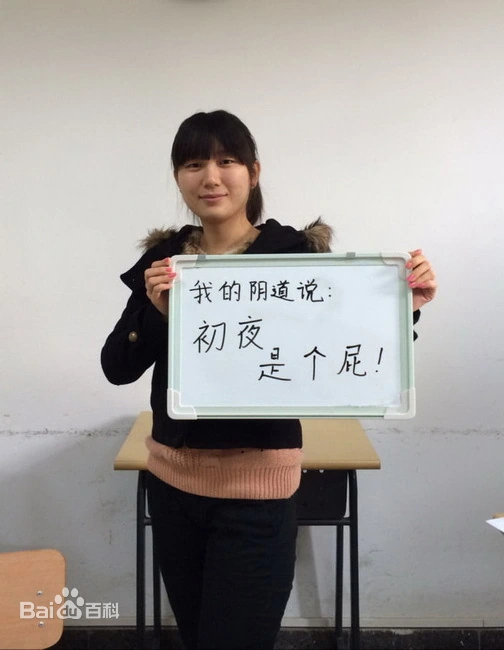 我的阴道说:
初夜
是个屁!
Bai百科